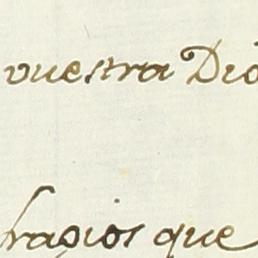 vuestra Dió
fragios que